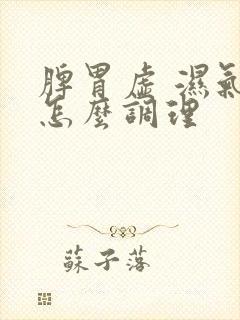 脾胃虛 濕氣
怎麼調理
蘇子落